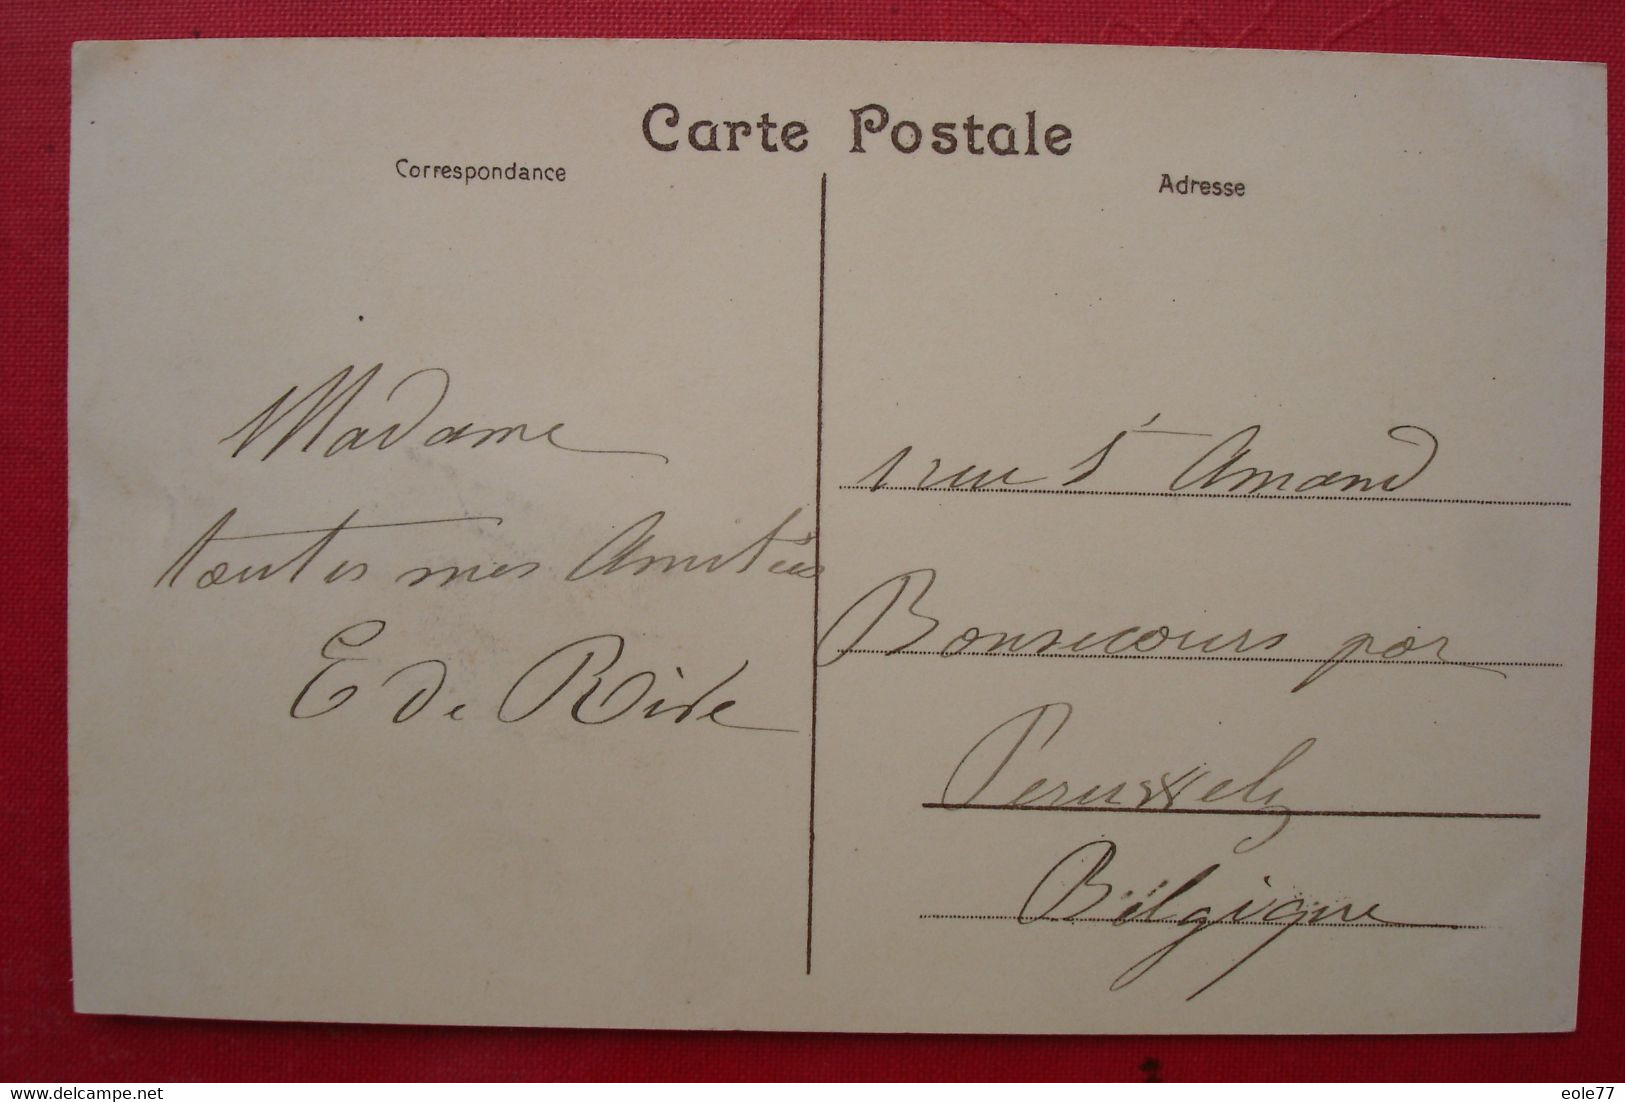 Carte Postale
Correspondance
Adresse
Madame
toutes mes Amitiés
E de Ride
1 rue St Amand
Bonsecours par
Peruwelz
Belgique
eole77